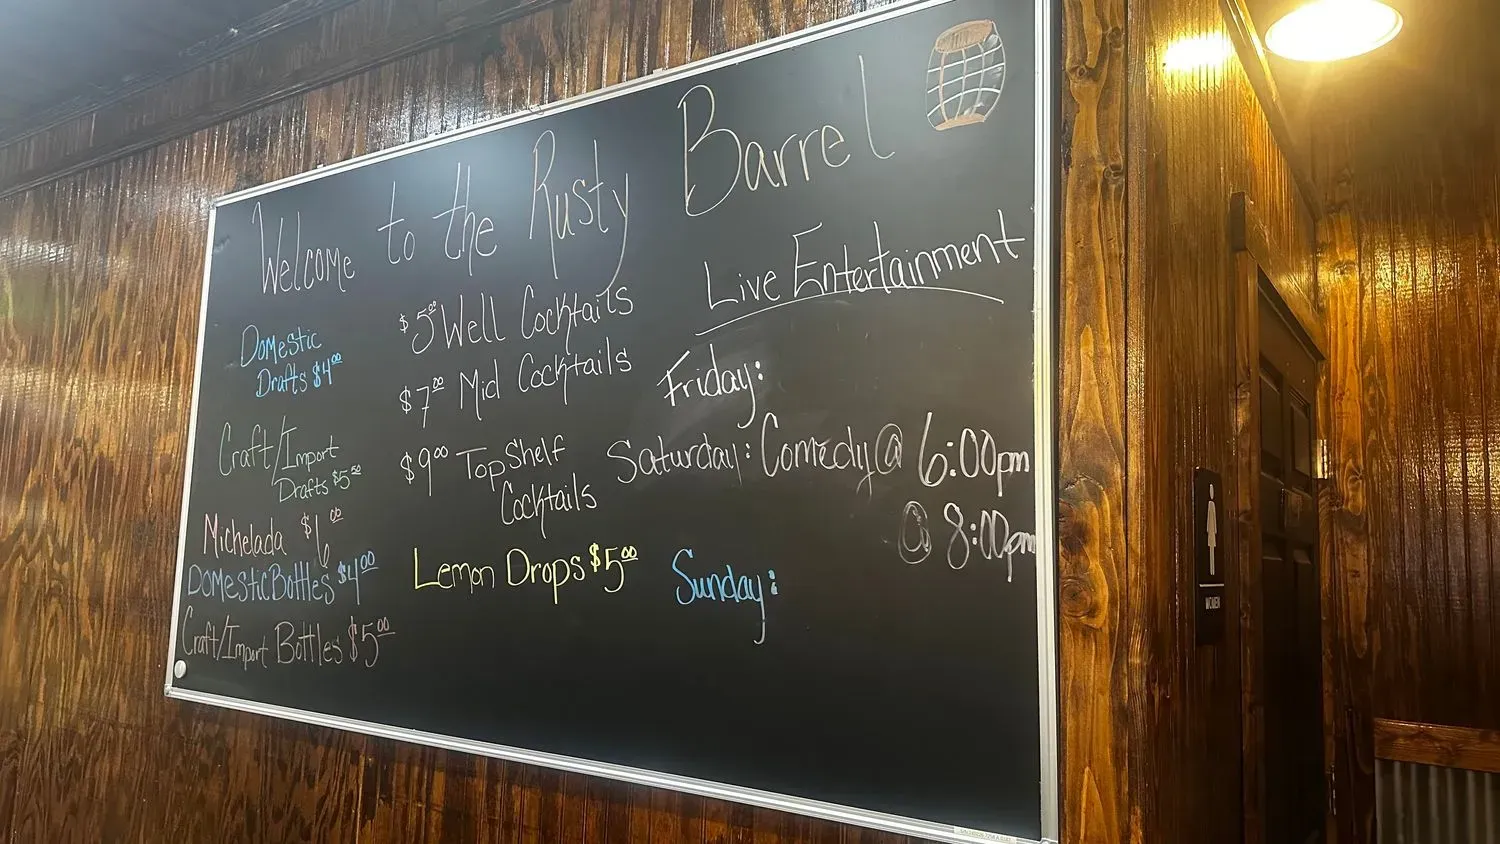 Welcome to the Rusty Barrel
Domestic
Drafts $4.00
Craft/Import
Drafts $5.50
Michelada $6.00
Domestic Bottles $4.00
Craft/Import Bottles $5.00
$5.00 Well Cocktails
$7.00 Mid Cocktails
$9.00 Top Shelf
Cocktails
Lemon Drops $5.00
Live Entertainment
Friday:
Saturday: Comedy @ 6:00pm
@ 8:00pm
Sunday:
WOMEN